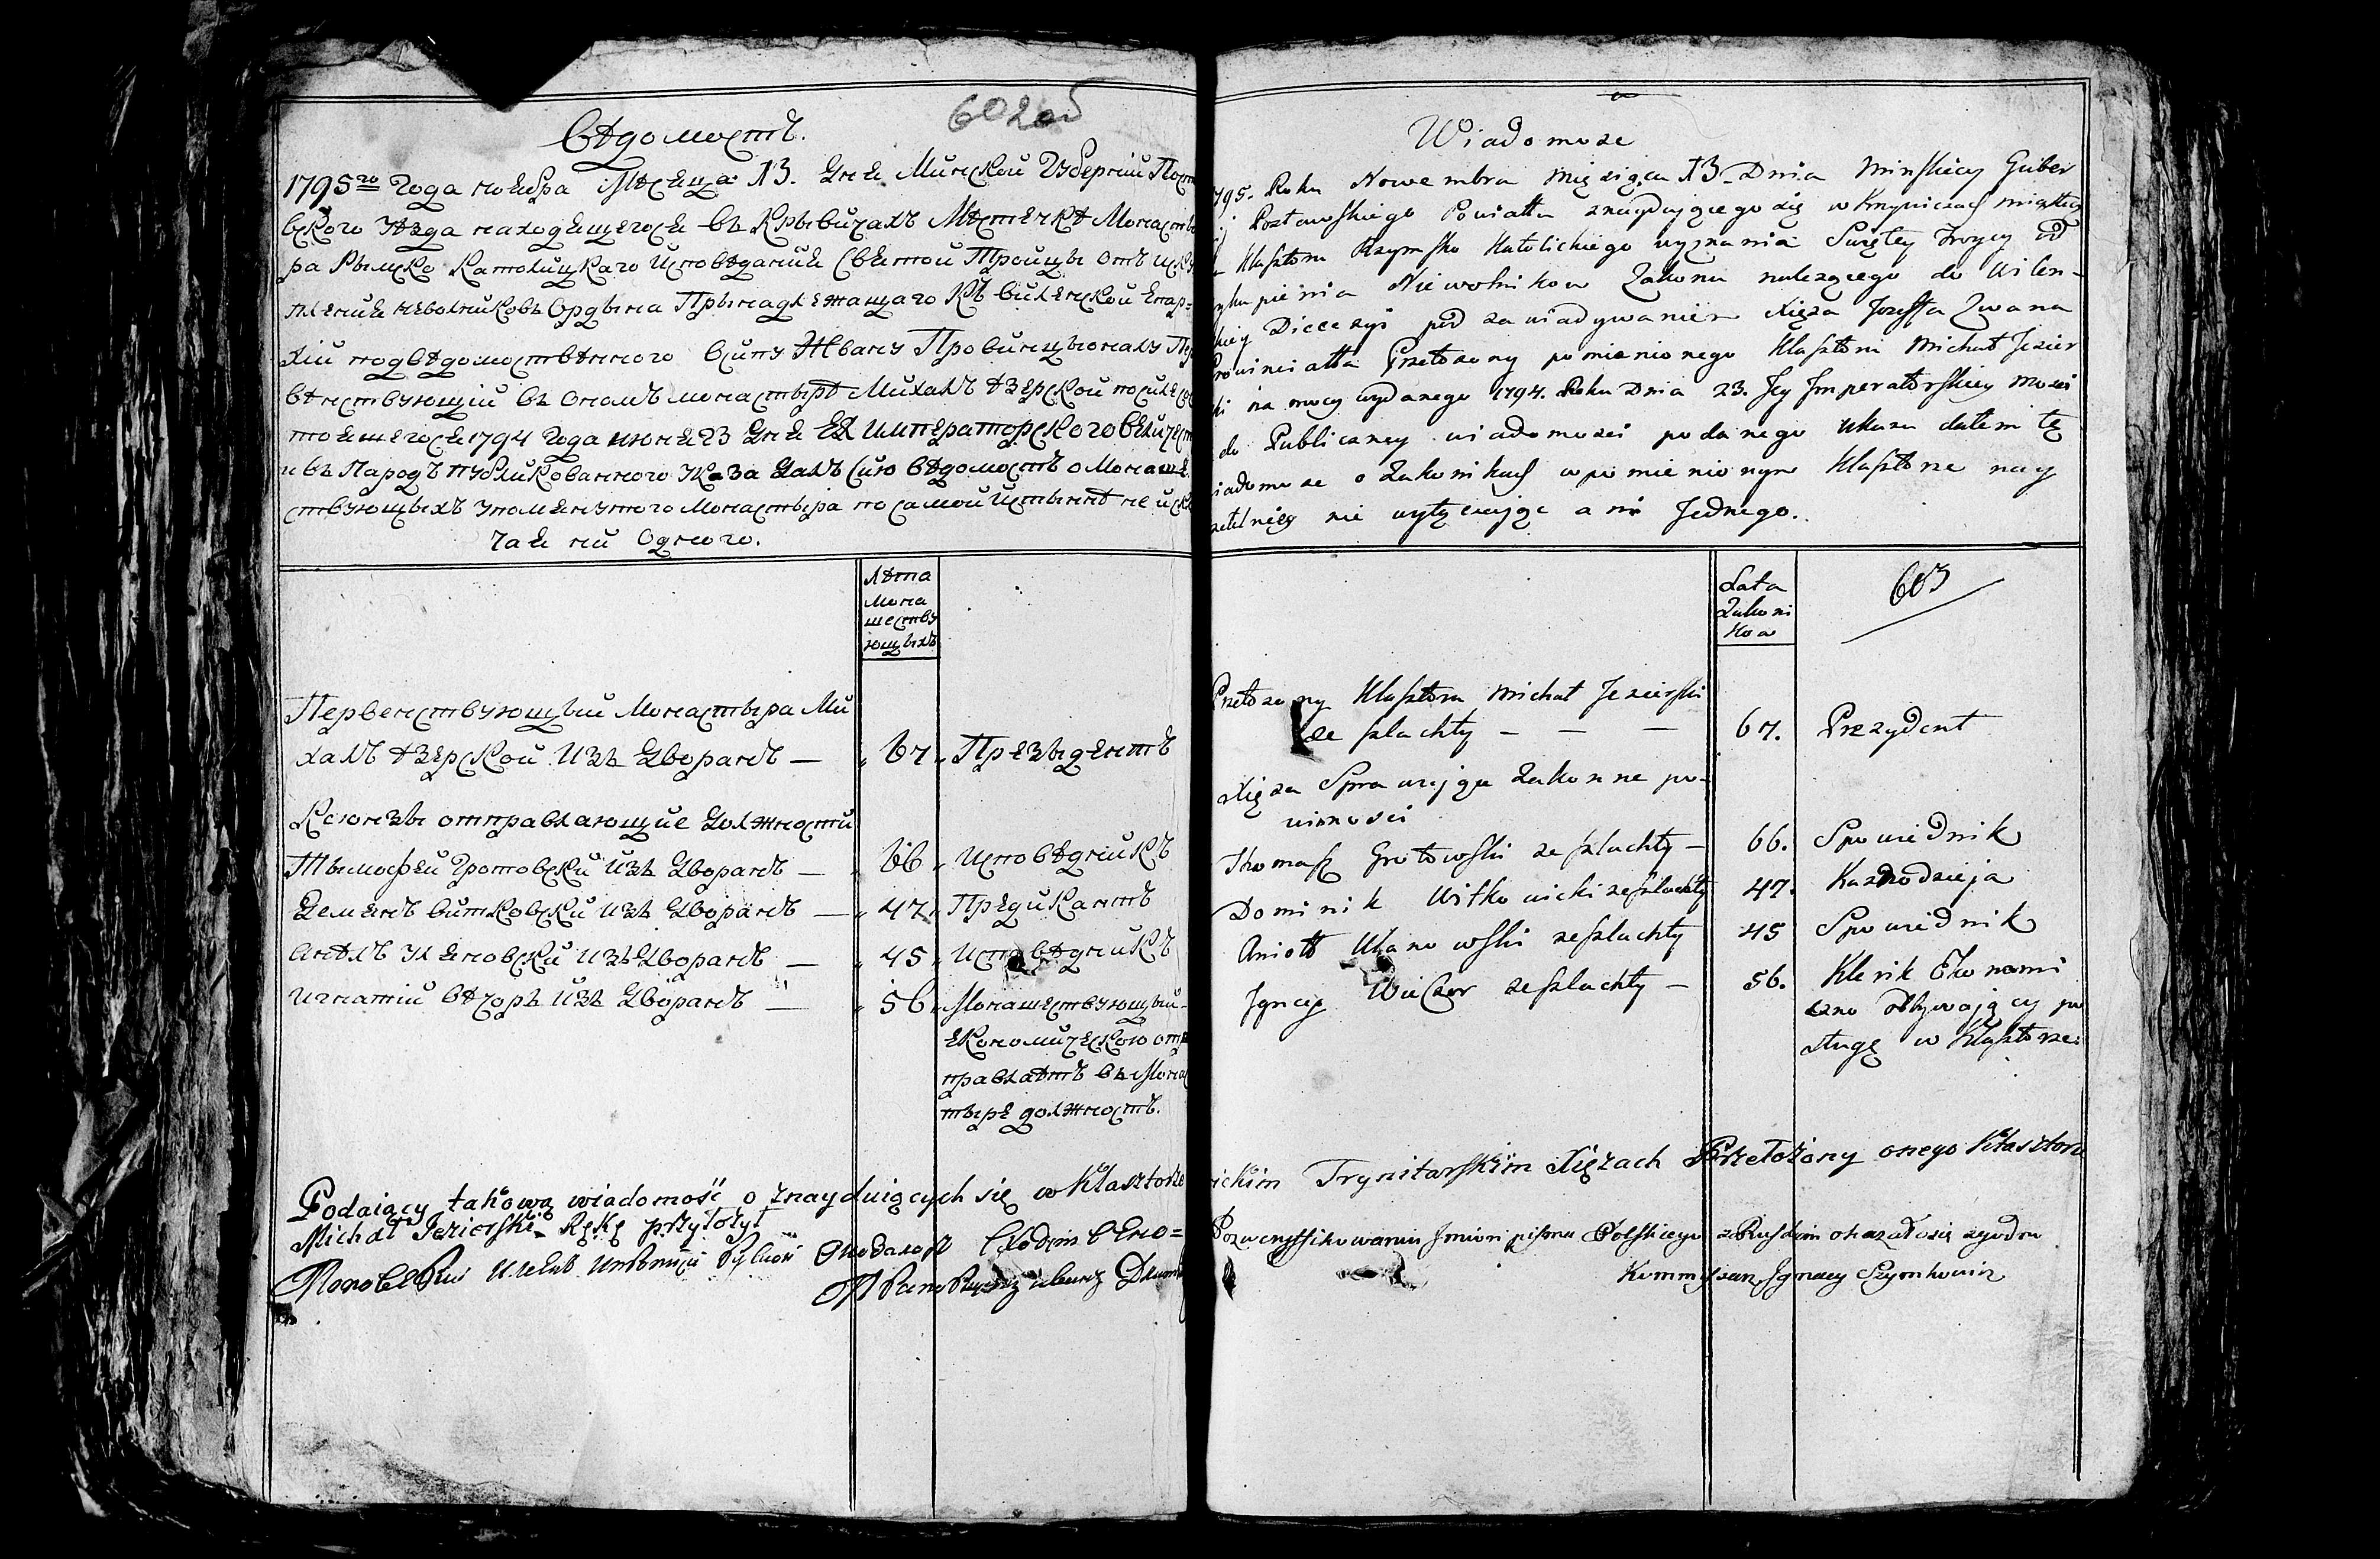 602об
Вѣдомость.
1795го Года ноября Мѣсяца 13. Дня Минской Губерніи Пост
вского Уѣзда находящегося въ Крывичахъ Мѣстечкѣ Монасты
ра Рымско Католицкаго Исповѣданія Святой Тройцы отъ иску
пленія невольниковъ Ордына Прынадлежащаго Къ виленской Епар-
хіи подвѣдомственного Ксипу Жвану Провинцыоналу Пер
венствующій въ ономъ монастырѣ Михалъ Ѣзерской по силе со
тоящегося 1794 Года июня 23 Дня ЕЯ Императорского Величест
и въ Народъ Публикованного Указа Далъ Сию Вѣдомость о Монаше
ствующыхъ упомянутого Монастыра по самой Истыннѣ не иск
чая ни Одного.
Лѣта
Мона
шеству
ющыхъ
Первенствующый Монастыра Ми
халъ Ѣзерской Изъ Дворанъ — 67 Презыдентъ
Ксіонзы отправляющие Должности
Тымофей Гротовски Изъ Дворанъ — 66 Исповѣдникъ
Демянъ Витковски Изъ Дворанъ — 47 Предикантъ
Анѣлъ Уляновски Изъ Дворанъ — 45 Исповѣдникъ
Игнатій Вѣчоръ Изъ Дворанъ — 56 Монашествующый
економическою от
правлаѣтъ въ Мона
тыре должность.
Podaiący takową wiadomość o znayduiących się w Klasztorze
Michał Jezierski Rękę przyłożył
Wiadomosc
795. Roku Nowembra Miesięca 13 Dnia Minskiey Guber
Postawskiego Powiatu znaydującego się w Krzywiczach miastecz
Klasztoru Rzymsko Katolickiego wyznania Swiętey Troycy od
ykupienia Niewolnikow Zakonu należącego do Wilen-
kiey Diecezyi pod zawiadywaniem Xięza Jozeffa Zwana
Prowincialła Przełożony pomienionego Klasztoru Michał Jezier
ki na mocy wydanego 1794. Roku Dnia 23. Jey Jmperatorskiey Mości
do Publiczney wiadomości podanego ukazu dałem tę
iadomosc o Zakonikach w pomienionym Klasztorze nay
zetelniey nie wyłączając ani Jednego.
Lata
Zakoni
kow
603
Przełozony Klasztoru Michał Jezierski
ze szlachty — — — 67. Prezydent
Xięza Sprawująca Zakonne po-
winności
Thomasz Grotowski ze szlachty — 66. Spowiednik
Dominik Witkowicki ze szlachty 47. Kaznodzieja
Anioł Ulanowski ze szlachty 45 Spowiednik
Jgnacy Wieczor ze szlachty — 56. Klerik Ekonomi
czno odbywający po
sługę w Klasztorze
ickim Trynitarskim Xięzach Przełożony onego Klasztoru
smion pisma Polskiego z Ruskim okazało się zgodno
Kommisarz Jgnacy Szymkowicz